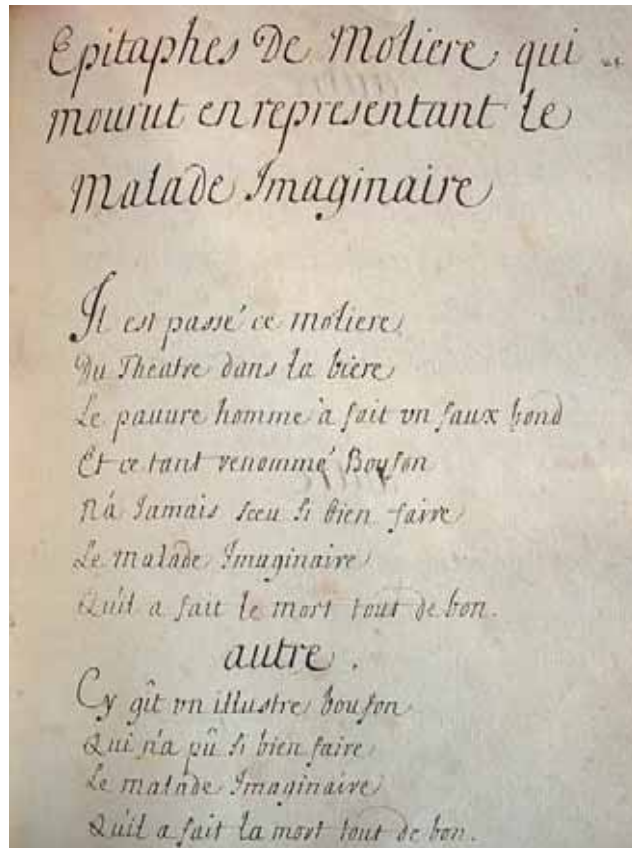 Epitaphes De Moliere qui ..
mourut en representant le
Malade Imaginaire
Il est passé ce moliere
Du Theatre dans la biere
Le pauure homme à fait vn faux bond
Et ce tant renommé Boufon
N'á Jamais sceu si bien faire
Le malade Imaginaire
Qu'il a fait le mort tout de bon.
autre.
Cy gît vn illustre boufon
Qui n'a pû si bien faire
Le malade Imaginaire
Qu'il a fait la mort tout de bon.